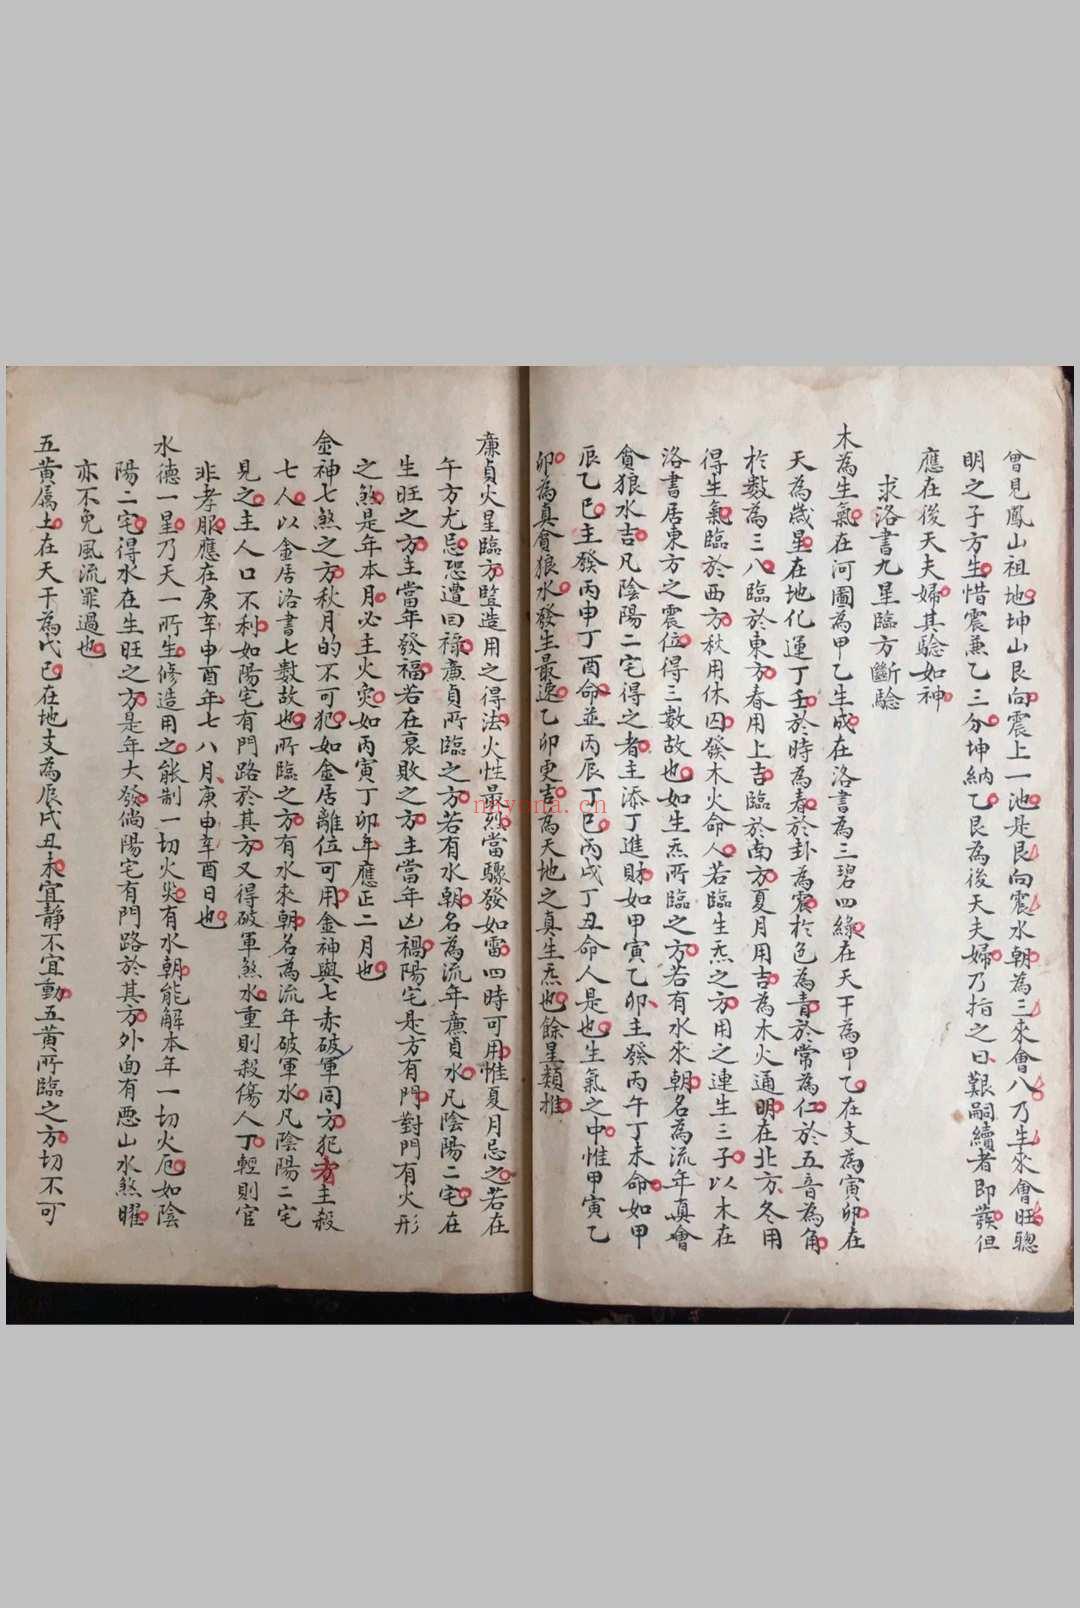 曾見鳳山祖地坤山艮向震上一池是艮向震水朝為三來會八乃生來會旺聰
明之子方生惜震兼乙三分坤納乙艮為後天夫婦乃指之曰艱嗣續者即發但
應在後天夫婦其驗如神
求洛書九星臨方斷驗
木為生氣在河圖為甲乙生成在洛書為三碧四綠在天干為甲乙在支為寅卯在
天為歲星在地化運丁壬於時為春於卦為震於色為青於常為仁於五音為角
於數為三八臨於東方春用上吉臨於南方夏月用吉為木火通明在北方冬用
得生氣臨於西方秋用休囚發木火命人若臨生炁之方用之連生三子以木在
洛書居東方之震位得三數故也如生炁所臨之方若有水來朝名為流年真會
貪狼水吉凡陰陽二宅得之者主添丁進財如甲寅乙卯主發丙午丁未命如甲
辰乙巳主發丙申丁酉命並丙辰丁巳丙戌丁丑命人是也生氣之中惟甲寅乙
卯為真貪狼水發生最速乙卯更吉為天地之真生炁也餘星類推
廉貞火星臨方豎造用之得法火性最烈當驟發如雷四時可用惟夏月忌之若在
午方尤忌恐遭回祿廉貞所臨之方若有水朝名為流年廉貞水凡陰陽二宅在
生旺之方主當年發福若在衰敗之方主當年凶禍陽宅是方有門對門有火形
之煞是年本月必主火灾如丙寅丁卯年應正二月也
金神七煞之方秋月的不可犯如金居離位可用金神與七赤破軍同方犯者主殺
七人以金居洛書七數故也所臨之方有水來朝名為流年破軍水凡陰陽二宅
見之主人口不利如陽宅有門路於其方又得破軍煞水重則殺傷人丁輕則官
非孝服應在庚辛申酉年七八月庚申辛酉日也
水德一星乃天一所生修造用之能制一切火灾有水朝能解本年一切火厄如陰
陽二宅得水在生旺之方是年大發倘陽宅有門路於其方外面有惡山水煞曜
亦不免風流罪過也
五黃屬土在天干為戊己在地支為辰戌丑未宜靜不宜動五黃所臨之方切不可
nayona.cn